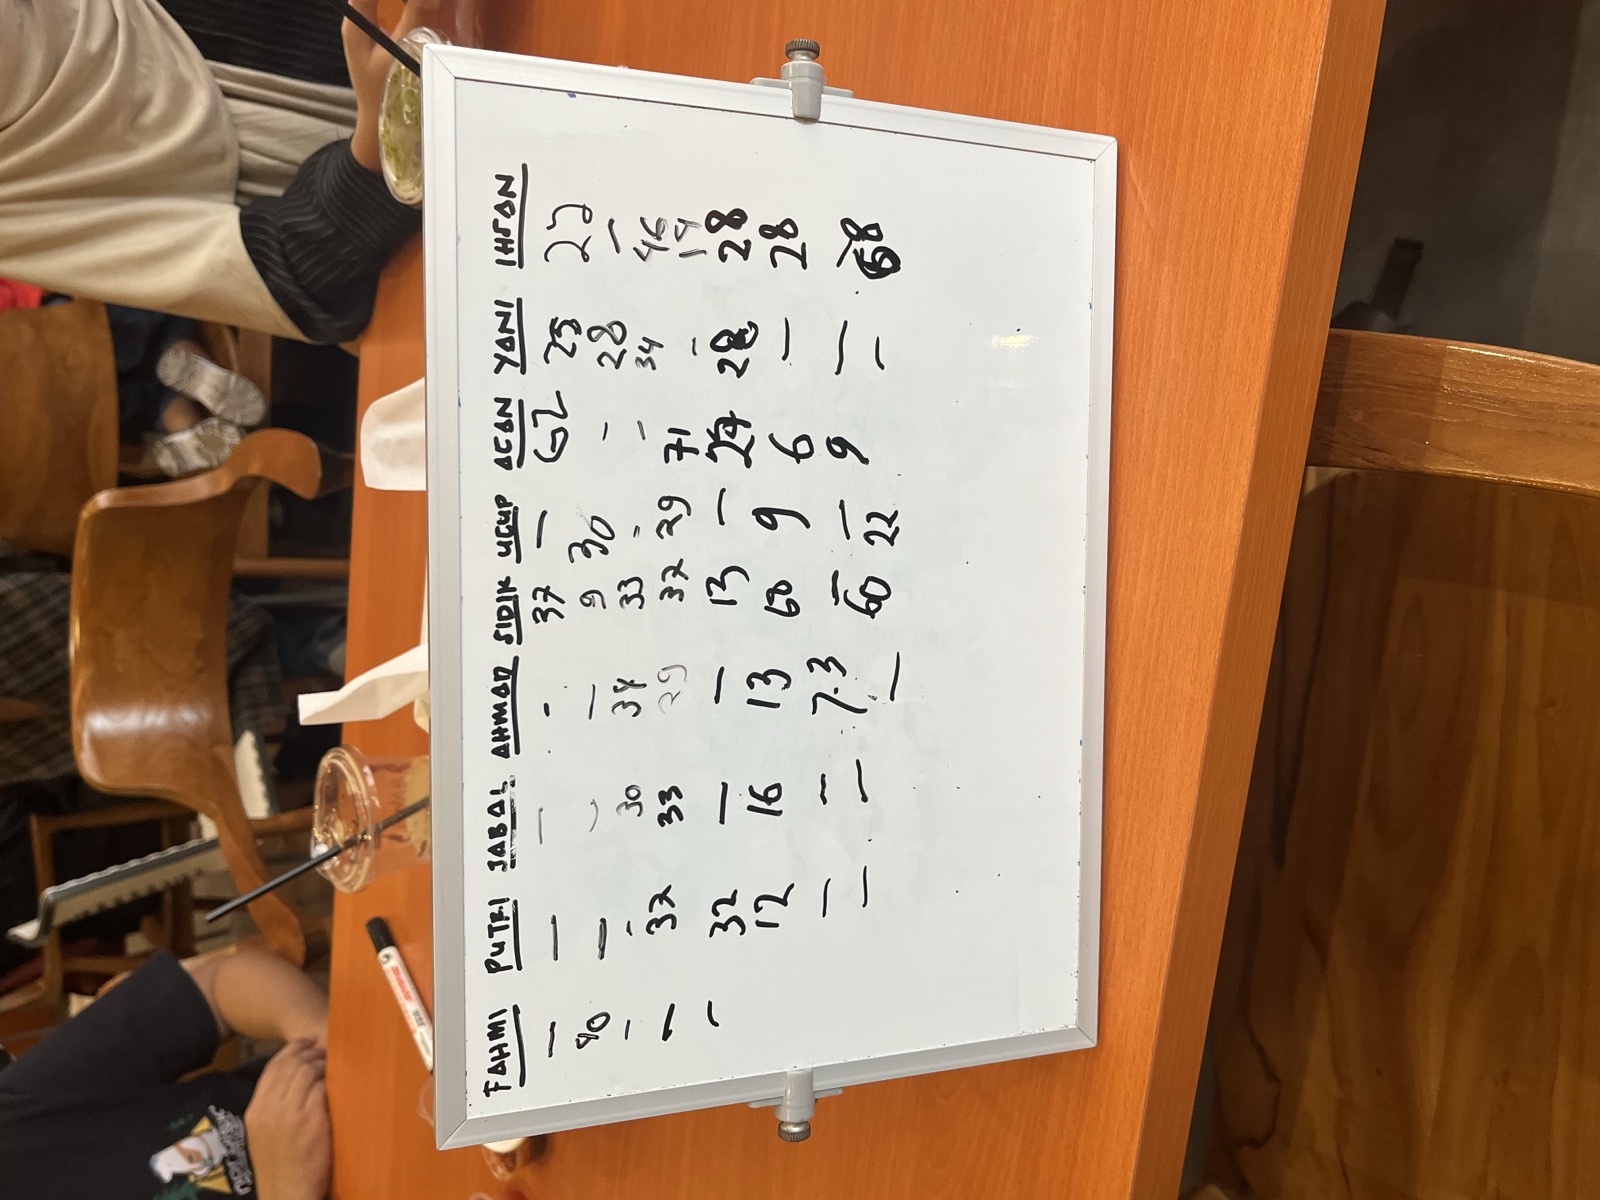 FAHMI PUTRI JABAL AHMAD SIDIK UCUP ACAN YANI IHFAN
— — — - 37 — 62 25 25
40 — — — 9 30 - 28 —
- - 30 34 33 - - 34 46
— 37 33 29 37 29 71 - 14
— 32 — — 13 — 24 28 28
12 16 13 60 9 6 — 28
— - 7.3 — — 9 — 68
— — — 60 22 —